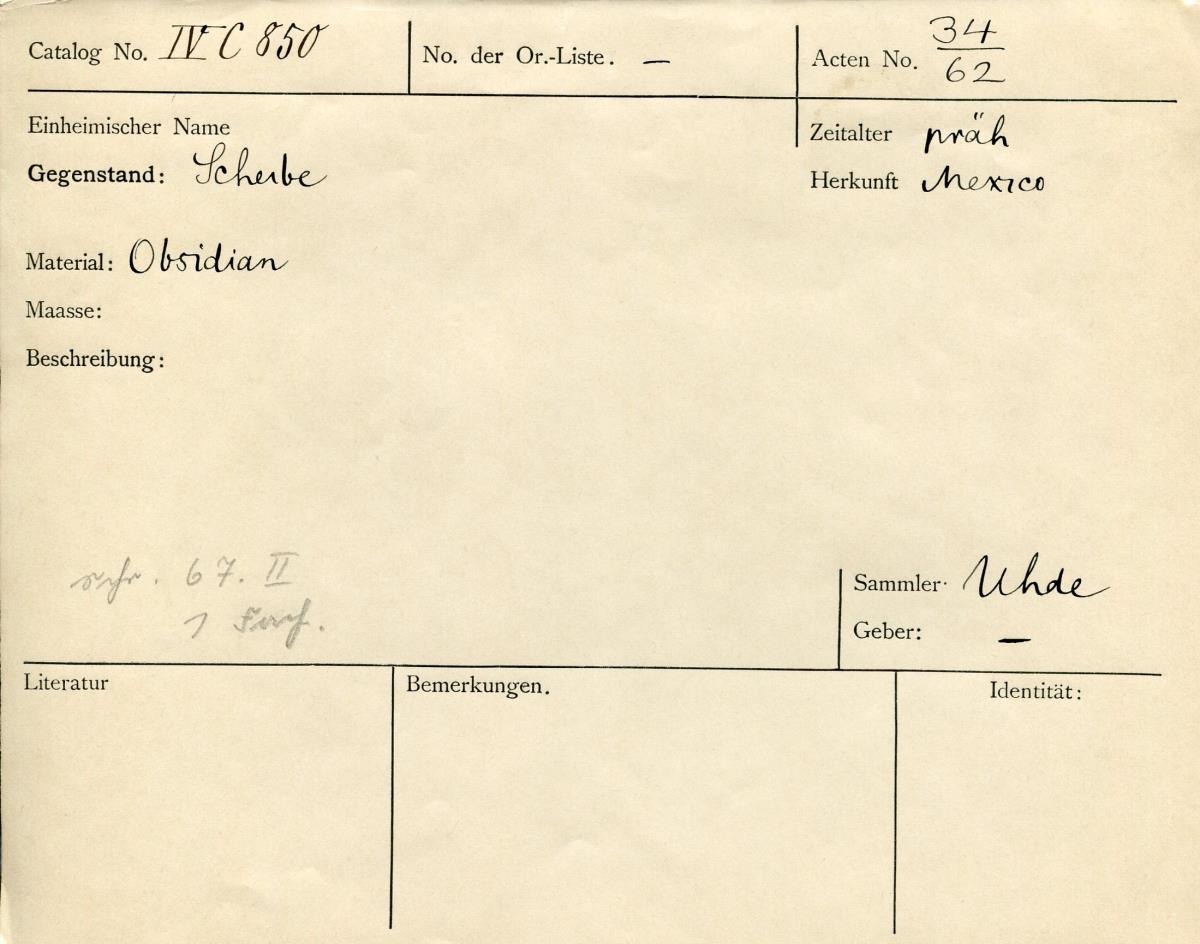 Catalog No. IV C 850
No. der Or.-Liste. —
Acten No. 34/62
Einheimischer Name
Zeitalter präh
Gegenstand: Scheibe
Herkunft Mexico
Material: Obsidian
Maasse:
Beschreibung:
67. II
1 Fach.
Sammler Uhde
Geber: —
Literatur
Bemerkungen.
Identität: